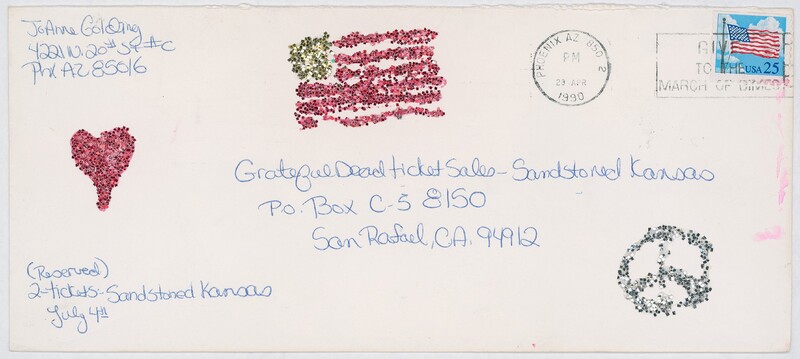 JoAnne Golding
4221 N. 20th St #C
Phx AZ 85016
PHOENIX AZ 850 2
PM
23 APR
1990
GIVE
TO THE
MARCH OF DIMES
USA 25
Grateful Dead ticket Sales - Sandstoned Kansas
P.O. Box C-S 8150
San Rafael, CA. 94912
(Reserved)
2-tickets-Sandstoned Kansas
July 4th